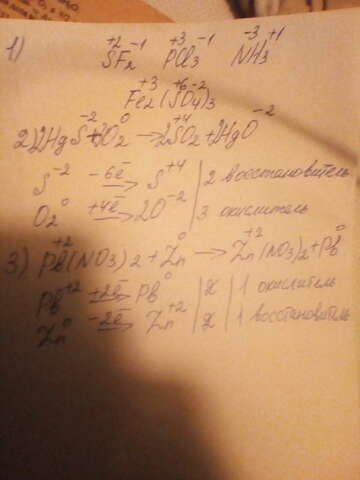 1) S⁺²F₂⁻¹ P⁺³Cl₃⁻¹ N⁻³H₃⁺¹
Fe₂⁺³(S⁺⁶O₄⁻²)₃
2) 2HgS⁻²+3O₂⁰ → 2S⁺⁴O₂+2HgO⁻²
S⁻² -6e̅→ S⁺⁴ | 2 восстановитель
O₂⁰ +4e̅→ 2O⁻² | 3 окислитель
3) Pb⁺²(NO₃)₂+Zn⁰ → Zn⁺²(NO₃)₂+Pb⁰
Pb⁺² +2e̅→ Pb⁰ | 2 | 1 окислитель
Zn⁰ -2e̅→ Zn⁺² | 2 | 1 восстановитель